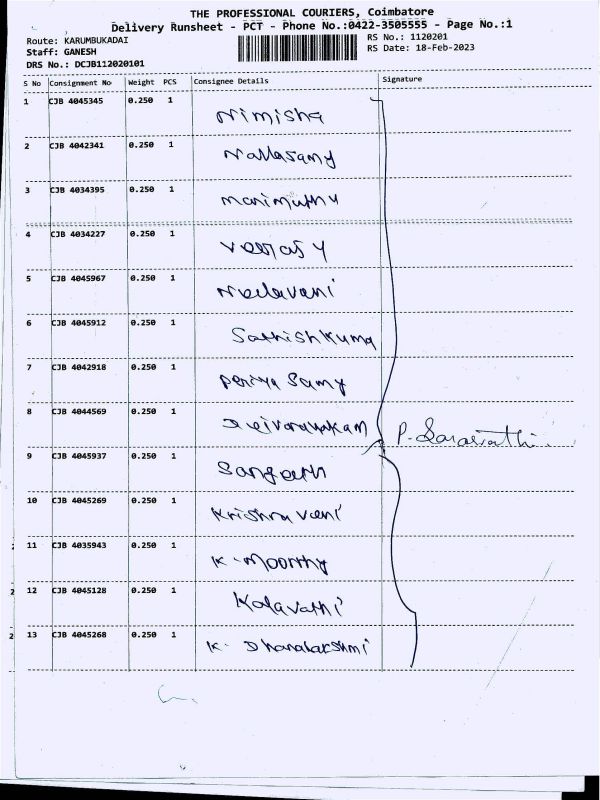 THE PROFESSIONAL COURIERS, Coimbatore
Delivery Runsheet - PCT - Phone No.:0422-3505555 - Page No.:1
Route: KARUMBUKADAI
Staff: GANESH
DRS No.: DCJB112020101
RS No.: 1120201
RS Date: 18-Feb-2023
S No Consignment No Weight PCS Consignee Details Signature
1 CJB 4045345 0.250 1 Nimisha
2 CJB 4042341 0.250 1 Nallasamy
3 CJB 4034395 0.250 1 Marimuthu
4 CJB 4034227 0.250 1 Veeraj Y
5 CJB 4045967 0.250 1 Neelavani
6 CJB 4045912 0.250 1 Sathishkuma
7 CJB 4042918 0.250 1 Periya Samy
8 CJB 4044569 0.250 1 Deivanayakam P. Saravathi
9 CJB 4045937 0.250 1 Sangeeth
10 CJB 4045269 0.250 1 Krishna Vani
11 CJB 4035943 0.250 1 K. Moorthy
12 CJB 4045128 0.250 1 Kalavathi
13 CJB 4045268 0.250 1 K. Dhanalakshmi